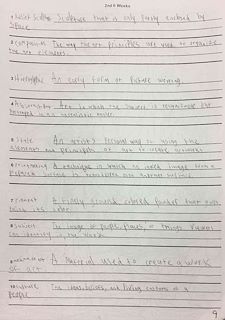 2nd 6 Weeks
1 Relief Sculpture Sculpture that is only partly enclosed by
space
2 composition The way the art principles are used to organize
the art elements.
3 Hieroglyphic An early form of picture writing
4 Art in which the subject is recognizable but
5 Style An artist's personal way of using the
elements and principles of art to create artwork
6 A technique in which an inked image from a
prepared surface is transferred onto another surface
7 Pigment A finely ground colored powder that gives
paint its color.
8 Subject The image of people, places, or things viewers
can identify in the artwork
9 A material used to create a work
of art
10 culture The ideas, beliefs, and living customs of a
people
9